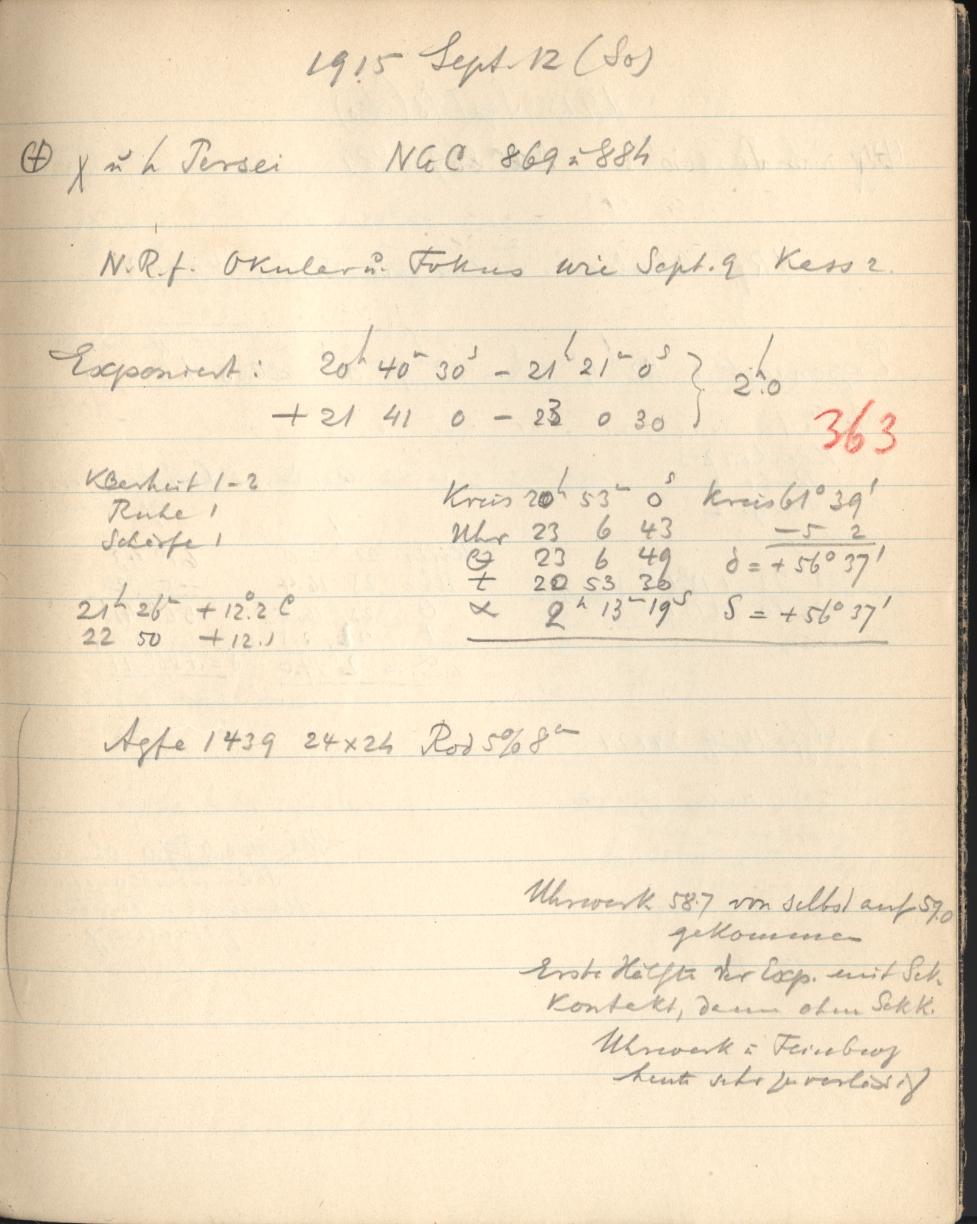 1915 Sept. 12 (So)
χ u h Persei NGC 869 u 884
N.R.f. Okular u. Fokus wie Sept. 9 Kass 2.
Exponiert: 20h 40m 30s – 21h 21m 0s } 2h.0
+ 21 41 0 – 23 0 30
363
Klarheit 1–2
Ruhe 1
Schärfe 1
Kreis 20h 53m 0s Kreis 61° 39'
Uhr 23 6 43 –5 2
Θ 23 6 49 δ = +56° 37'
t 20 53 30
α 2h 13m 19s δ = +56° 37'
21h 26m + 12°.2 C
22 50 + 12.1
Agfa 1439 24×24 Rod 5% 8m
Uhrwerk 58.7 von selbst auf 59.0
gekommen
Erste Hälfte der Exp. mit Sek.
Kontakt, dann ohne Sek K.
Uhrwerk u Feinbeweg
heute sehr zuverlässig